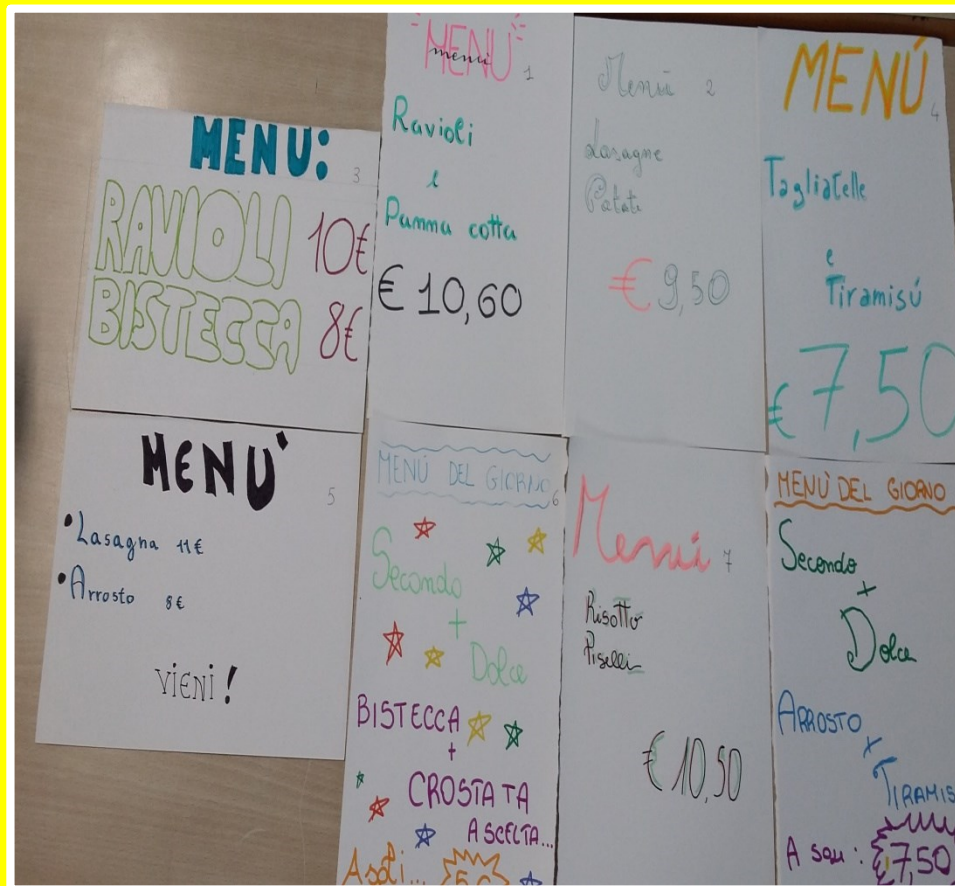 MENU:
3
RAVIOLI 10€
BISTECCA 8€
MENÙ
menu
1
Ravioli
e
Panna cotta
€ 10,60
Menù 2
Lasagne
Patate
€ 9,50
MENÚ
4
Tagliatelle
e
Tiramisú
€ 7,50
MENU'
5
• Lasagna 11€
• Arrosto 8€
VIENI!
MENÙ DEL GIORNO
6
Secondo
+
Dolce
BISTECCA
+
CROSTATA
A SCELTA...
A soli...
Menù 7
Risotto
Piselli
€ 10,50
MENÙ DEL GIORNO
Secondo
+
Dolce
ARROSTO
+
TIRAMIS
A soli: €7,50